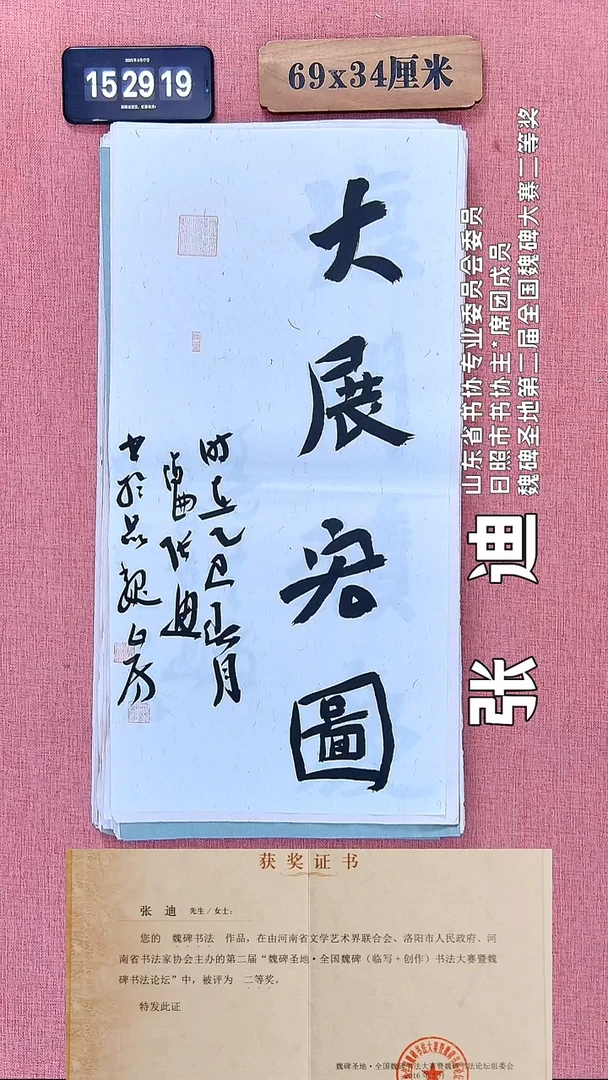 15 29 19
69x34厘米
大展宏圖
时在乙巳正月
卤西张迪
书于品魏上房
山东省书协专业委员会委员
日照市书协主*席团成员
魏碑圣地第二届全国魏碑大赛二等奖
张 迪
获奖证书
张 迪 先生/女士:
您的 魏碑书法 作品,在由河南省文学艺术界联合会、洛阳市人民政府、河
南省书法家协会主办的第二届“魏碑圣地·全国魏碑(临写+创作)书法大赛暨魏
碑书法论坛”中,被评为 二等奖。
特发此证
魏碑圣地·全国魏碑书法大赛暨魏碑书法论坛组委会